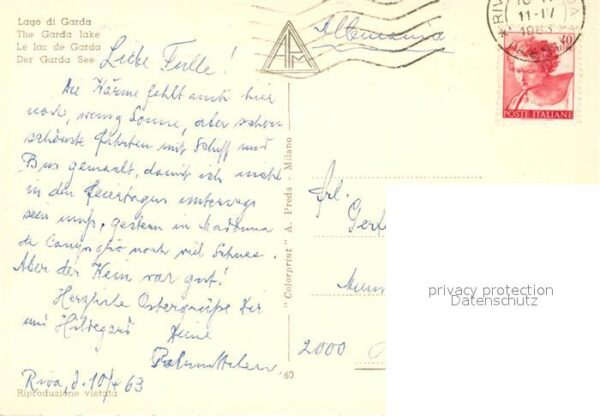 Lago di Garda
The Garda lake
Le lac de Garda
Der Garda See
Liebe
Die Wärme fehlt auch hier
noch, wenig Sonne, aber schon
schönste Fahrten mit Schiff und
Bus gemacht, damit ich nicht
in den Feiertagen unterwegs
sein muß, gestern in Madonna
di Campiglio noch viel Schnee.
Aber der Wein war gut!
Herzliche Ostergrüße Dir
und Hildegard
Deine
Riva, d. 10/4 63
Riproduzione vietata
"Colorprint" A. Preda - Milano
63
AAM
Altemania
RIVA
11-IV
1963
40
POSTE ITALIANE
Frl.
2000
privacy protection
Datenschutz